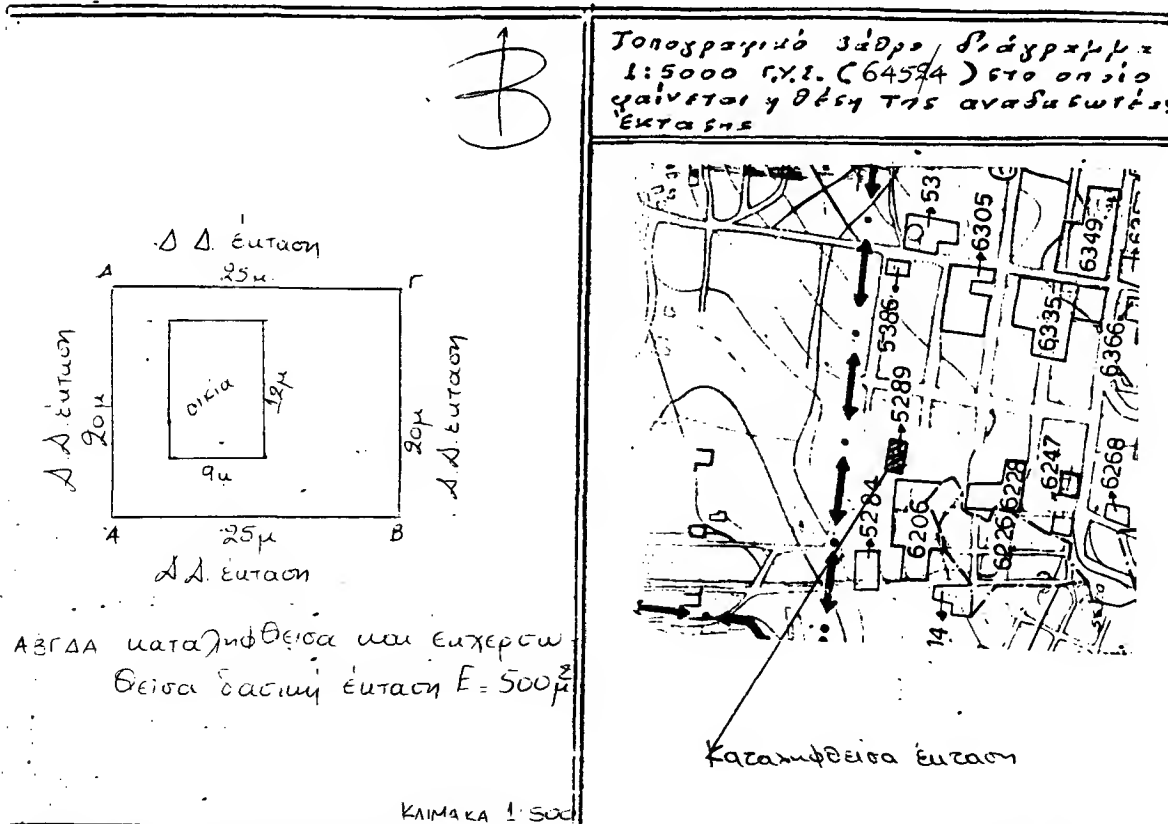 Β
Δ Δ. έκταση
25μ
Δ
Γ
Δ Δ. έκταση
20μ
οικία
12μ
9μ
20μ
Δ.Δ. έκταση
Α
25μ
Β
Δ Δ. έκταση
ΑΒΓΔΑ καταληφθείσα και εκχερσω
θείσα δασική έκταση Ε = 500μ²
ΚΛΙΜΑΚΑ 1:500
Τοπογραφικό βάθρο διάγραμμα
1:5000 Γ.Υ.Σ. (64524) στο οποίο
φαίνεται η θέση της αναδασωτέας
έκτασης
6305
6349
5386
6335
6366
5289
5284
6206
6228
6226
6247
6268
14
Καταληφθείσα έκταση